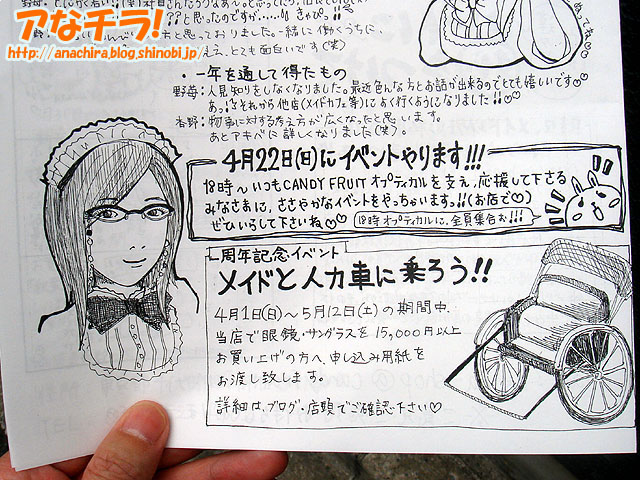 アなチラ!
http://anachira.blog.shinobi.jp/
と思ったのですが……
と思っておりました。一緒に働くうちに、
とても面白いです(笑)
・一年を通して得たもの
野苺:人見知りをしなくなりました。最近色んな方とお話が出来るのでとても嬉しいです
あっ!!それから他店(メイドカフェ等)によく行くようになりました!!♡♡
杏野:物事に対する考え方が広くなったと思います。
あとアキバに詳しくなりました(笑)。
4月22日(日)にイベントやります!!!
18時〜いつもCANDY FRUIT オプティカルを支え、応援して下さる
みなさまに、ささやかなイベントをやっちゃいます。!!(お店で♡)
ぜひいらして下さいね♡♡
18時オプティカルに、全員集合お!!!
一周年記念イベント
メイドと人力車に乗ろう!!
4月1日(日)〜5月12日(土)の期間中、
当店で眼鏡・サングラスを15,000円以上
お買い上げの方へ、申し込み用紙を
お渡し致します。
詳細は、ブログ・店頭でご確認下さい♡